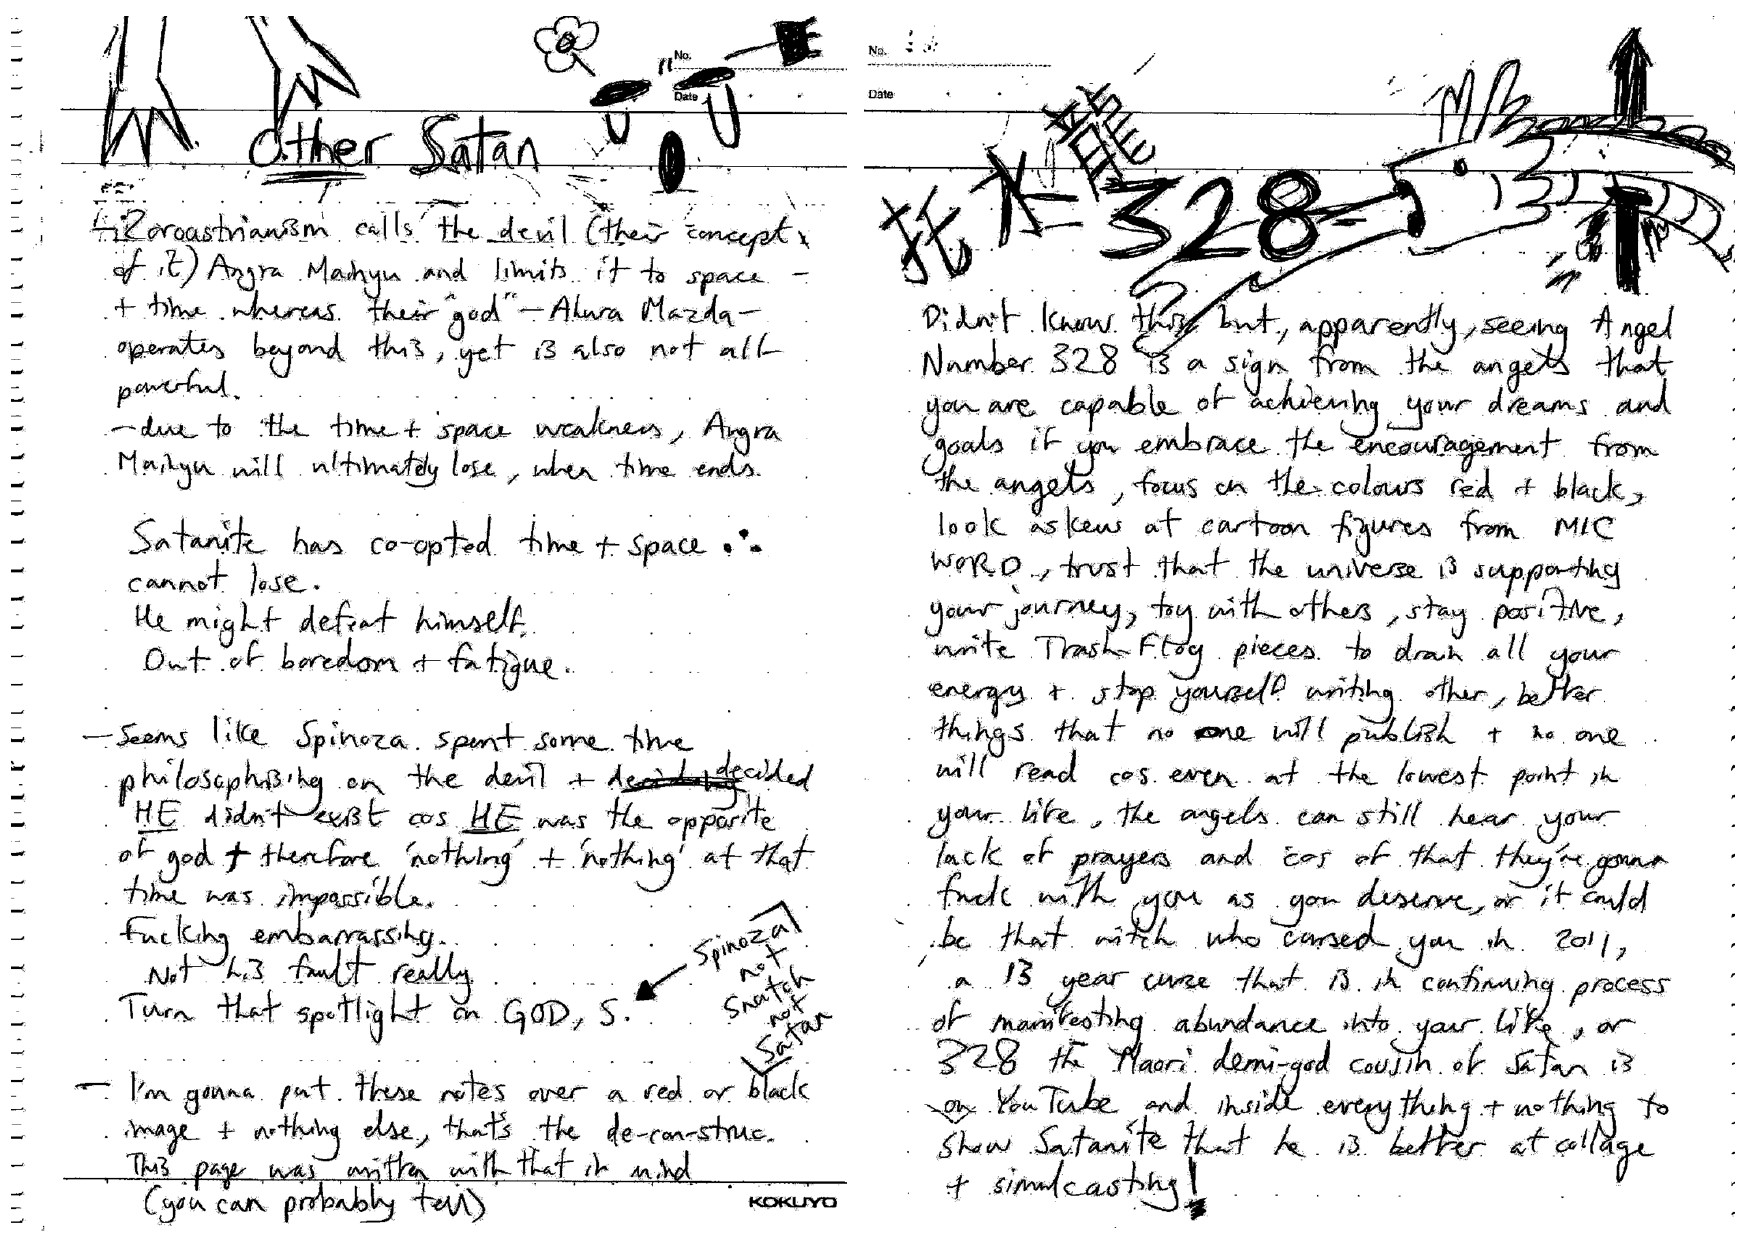 No.
Date
Other Satan
Zoroastrianism calls the devil (their concept
of it) Angra Mainyu and limits it to space
+ time whereas their "god" – Ahura Mazda –
operates beyond this, yet is also not all
powerful.
– due to the time + space weakness, Angra
Mainyu will ultimately lose, when time ends.
Satanite has co-opted time + space ∴
cannot lose.
He might defeat himself.
Out of boredom + fatigue.
– Seems like Spinoza spent some time
philosophising on the devil + decided
HE didn't exist cos HE was the opposite
of god + therefore 'nothing' + 'nothing' at that
time was impossible.
Fucking embarrassing.
Not his fault really
Turn that spotlight on GOD, S.
Spinoza
not
Snatch
not
Satan
– I'm gonna put these notes over a red or black
image + nothing else, that's the de-con-struc.
This page was written with that in mind
(you can probably tell)
KOKUYO
No.
Date
328
Didn't know this but, apparently, seeing Angel
Number 328 is a sign from the angels that
you are capable of achieving your dreams and
goals if you embrace the encouragement from
the angels, focus on the colours red + black,
look askew at cartoon figures from MIC
WORD, trust that the universe is supporting
your journey, toy with others, stay positive,
write Trash Flog pieces to drain all your
energy + stop yourself writing other, better
things that no one will publish + no one
will read cos even at the lowest point in
your life, the angels can still hear your
lack of prayers and cos of that they're gonna
fuck with you as you deserve, or it could
be that witch who cursed you in 2011,
a 13 year curse that is in continuing process
of manifesting abundance into your life, or
328 the Maori demi-god cousin of Satan is
on YouTube and inside everything + nothing to
show Satanite that he is better at collage
+ simulcasting!